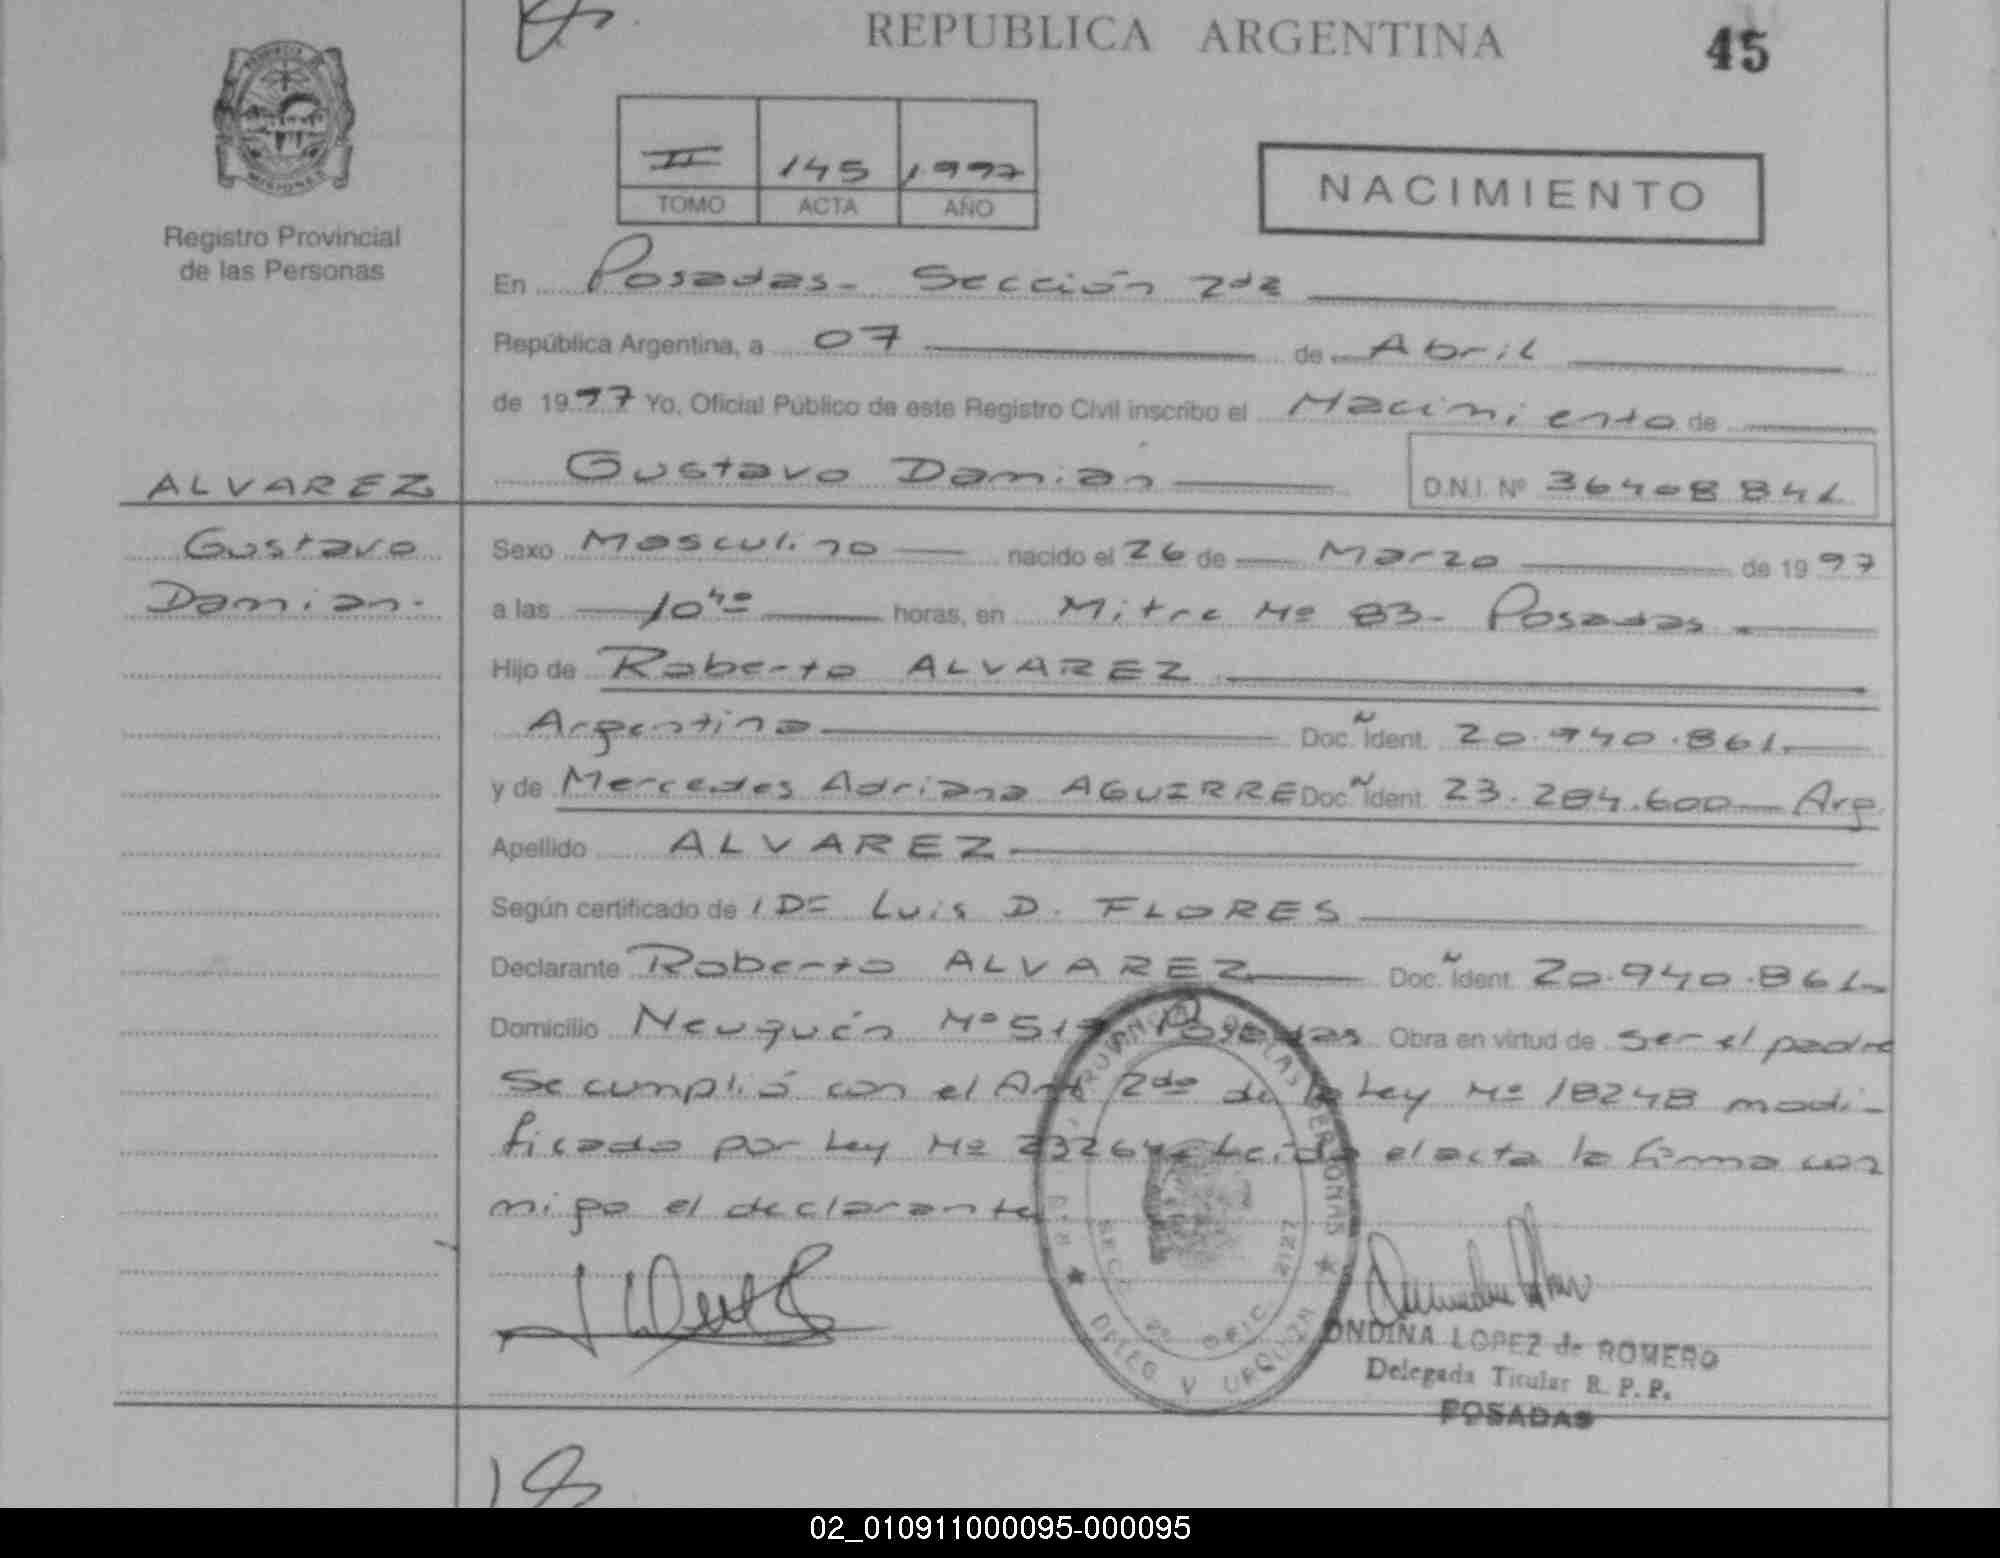 REPUBLICA ARGENTINA
45
PROVINCIA DE
MISIONES
Registro Provincial
de las Personas
II 145 1997
TOMO ACTA AÑO
NACIMIENTO
En Posadas - Sección 2da
República Argentina, a 07 de Abril
de 1997 Yo, Oficial Público de este Registro Civil inscribo el Nacimiento de
Gustavo Damián
D.N.I. Nº 36408841
ALVAREZ
Gustavo
Damian.-
Sexo Masculino nacido el 26 de Marzo de 1997
a las 10⁴⁰ horas, en Mitre Nº 83 - Posadas
Hijo de Roberto ALVAREZ
Argentina Doc. Ident. 20.940.861.
y de Mercedes Adriana AGUIRRE Doc. Ident. 23.284.600 Arg.
Apellido ALVAREZ
Según certificado de Luis D. FLORES
Declarante Roberto ALVAREZ Doc. Ident. 20.940.861-
Domicilio Neuquén Nº Posadas Obra en virtud de ser el padre
Se cumplió con el Art 2do de la Ley Nº 18248 modi-
ficado por Ley Nº 23264 - Leida el acta la firma con
migo el declarante
PROVINCIAL DE LAS PERSONAS
SECC. 2º OFIC. 2127
DELEG V URQUIZA
ONDINA LOPEZ de ROMERO
Delegada Titular R. P. P.
POSADAS
02_010911000095-000095